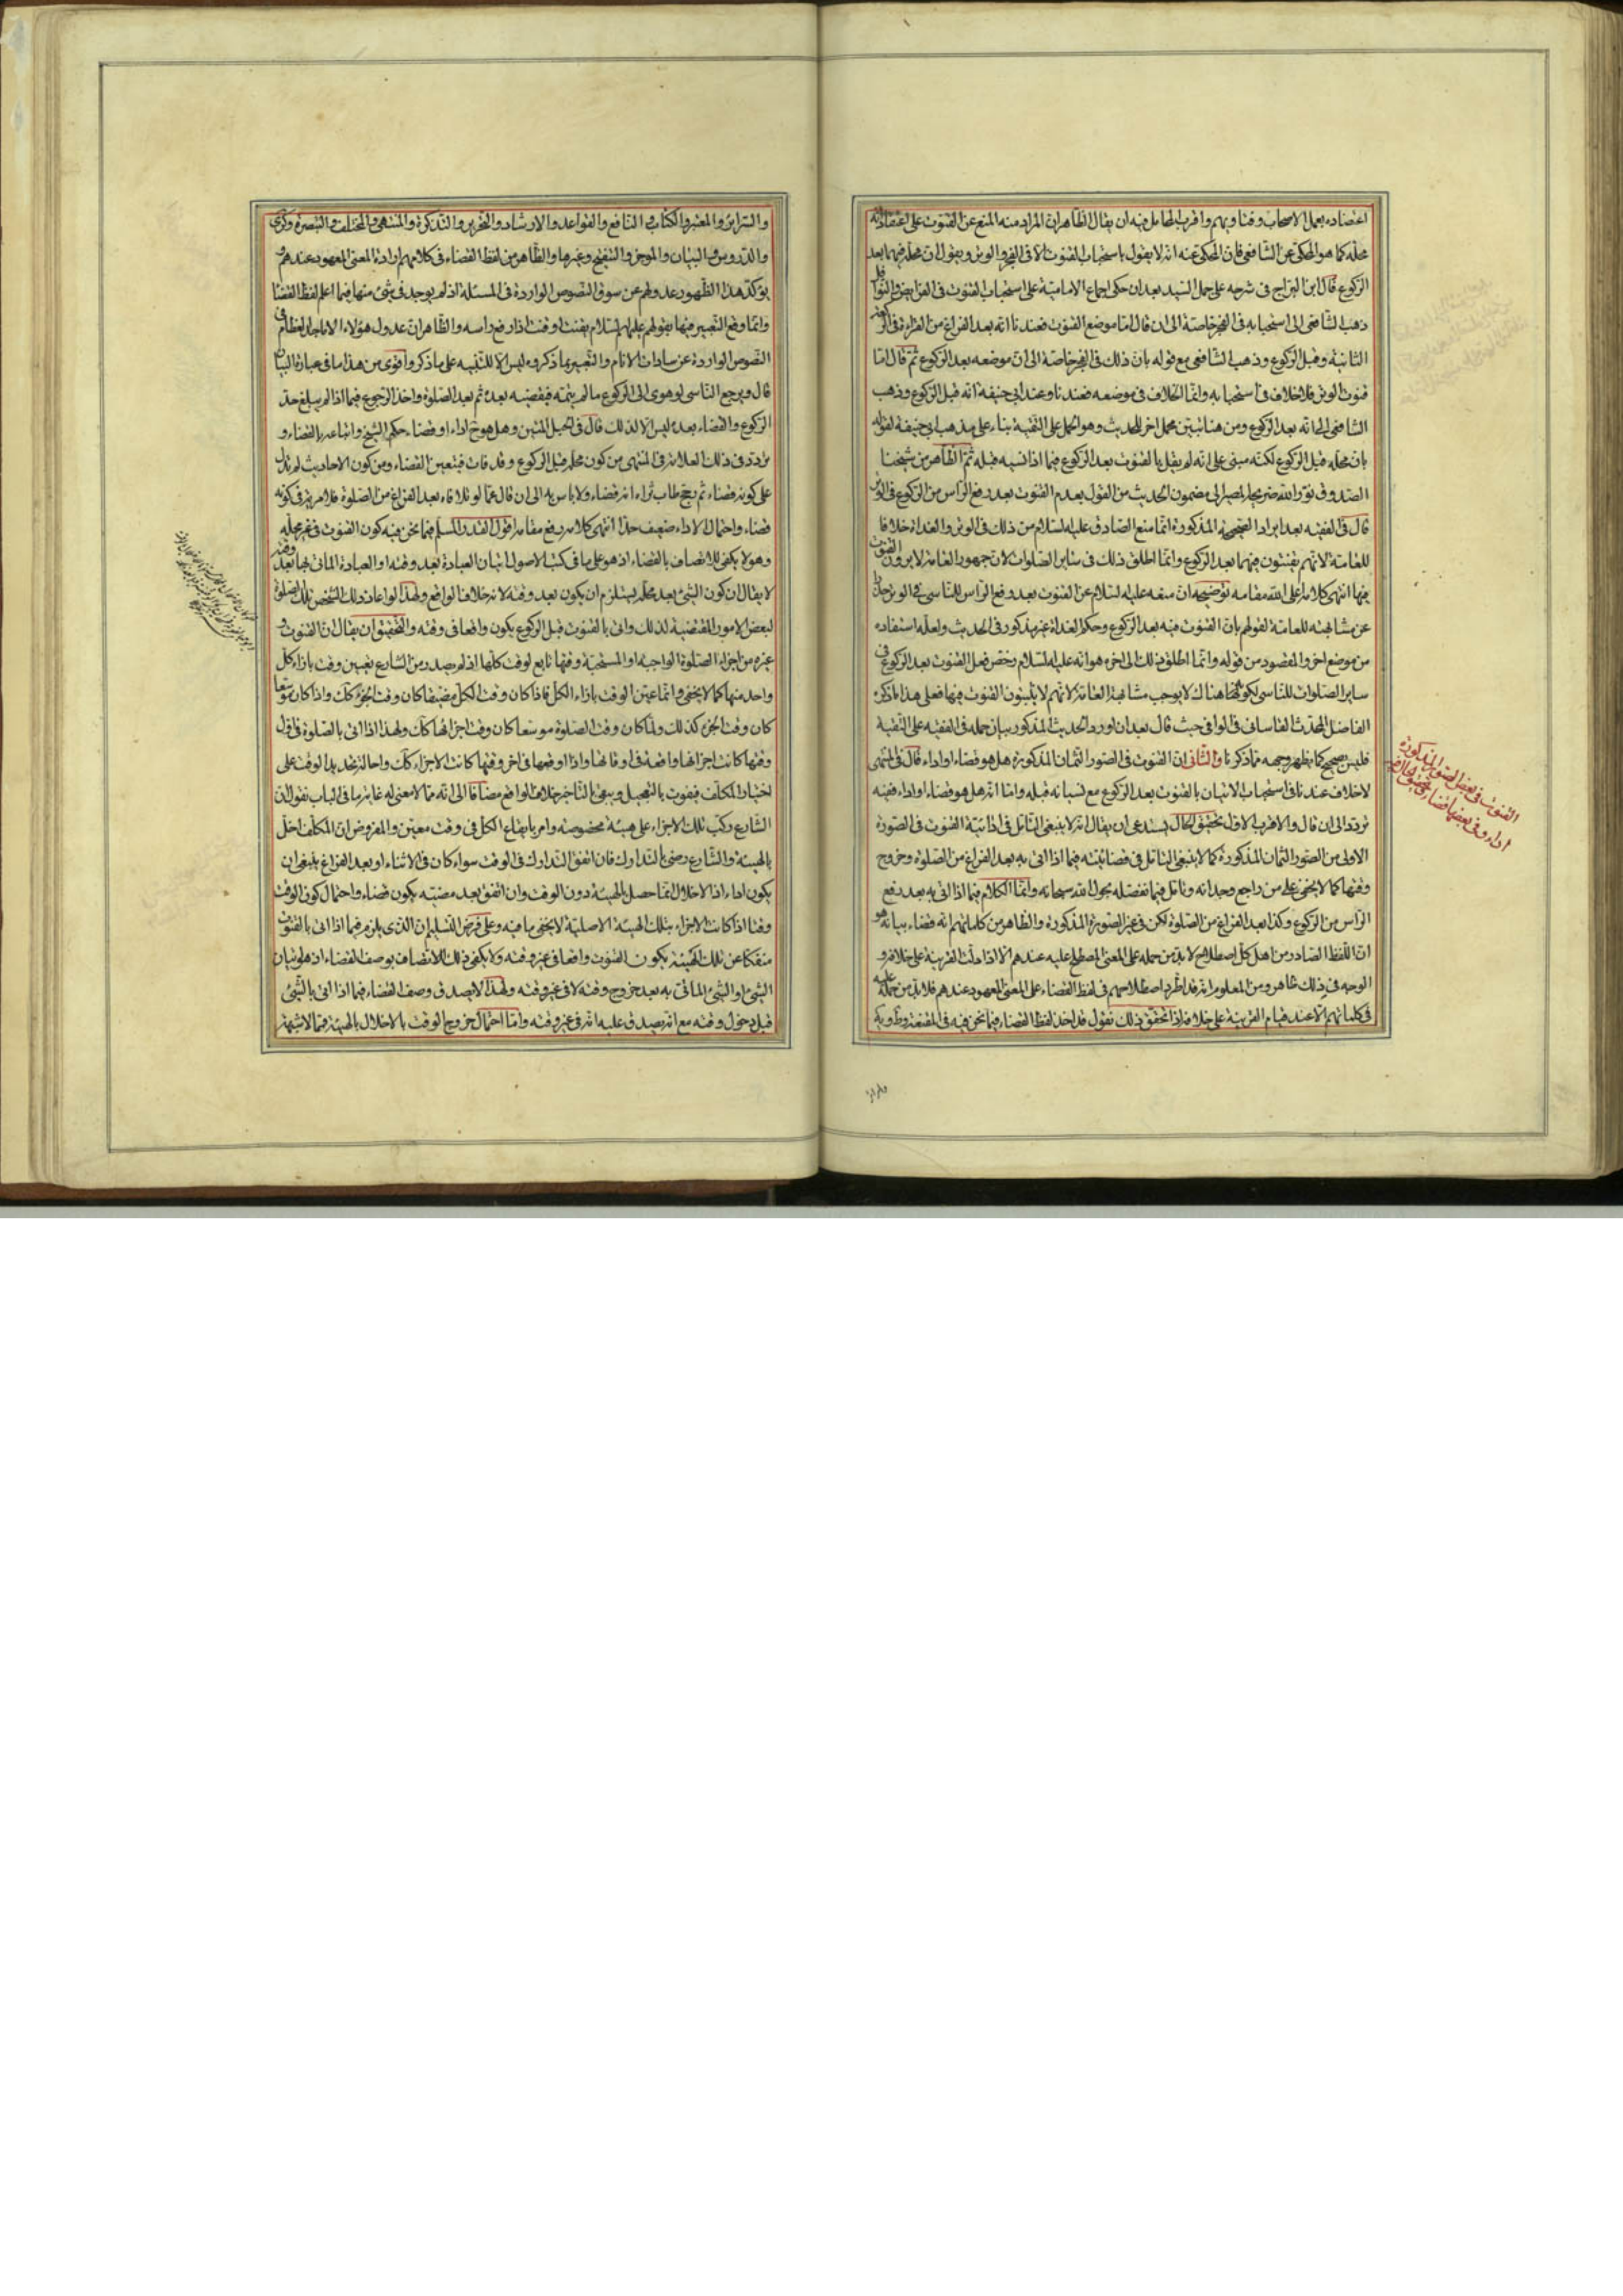 اعتضاده بعمل الاصحاب وفتاويهم واقرب المحامل فيه ان يقال الظاهر ان المراد منه المنع عن القنوت على اعتقاد انه
محله كما هو المحكى عن الشافعى فان المحكى عنه انه لا يقول باستحباب القنوت الا فى الفجر والوتر ويقول ان محله فيهما بعد
الركوع قال ابن البراج فى شرحه على جمل السيد بعد ان حكى اجماع الامامية على استحباب القنوت فى الفرايض والنوافل
ذهب الشافعى الى استحبابه فى الفجر خاصة الى ان قال اما موضع القنوت فعندنا انه بعد الفراغ من القراءة فى الركعة
الثانية وقبل الركوع وذهب الشافعى مع قوله بان ذلك فى الفجر خاصة الى ان موضعه بعد الركوع ثم قال اما
قنوت الوتر فلا خلاف فى استحبابه وانما الخلاف فى موضعه فعندنا وعند ابى حنيفة انه قبل الركوع وذهب
الشافعى الى انه بعد الركوع ومن هنا تبين محمل اخر للحديث وهو الحمل على التقية بناء على مذهب ابى حنيفة لقوله
بان محله قبل الركوع لكنه مبنى على انه لم يقل بالقنوت بعد الركوع فيما اذا نسيه قبله ثم الظاهر من شيخنا
الصدوق نور الله ضريحه المصير الى مضمون الحديث من القول بعدم القنوت بعد رفع الراس من الركوع فى الوتر
قال فى الفقيه بعد ايراد الصحيحة المذكورة انما منع الصادق عليه السلام من ذلك فى الوتر والغداة خلافا
للعامة لانهم يقنتون فيهما بعد الركوع وانما اطلق ذلك فى ساير الصلوات لان جمهور العامة لا يرون القنوت
فيها انتهى كلامه اعلى الله مقامه توضيحه ان منعه عليه السلام عن القنوت بعد رفع الراس للناسى فى الوتر
عن مشابهته للعامة لقولهم بان القنوت فيه بعد الركوع وحكم الغداة غير مذكور فى الحديث ولعله استفاده
من موضع اخر والمقصود من قوله وانما اطلق ذلك الى اخره هو انه عليه السلام رخص فعل القنوت بعد الركوع فى
ساير الصلوات للناسى لكونه هناك لا يوجب مشابهة العامة لانهم لا يثبتون القنوت فيها فعلى هذا ما ذكره
الفاضل المحدث القاسانى فى الوافى حيث قال بعد ان اورد الحديث المذكور بيان حمله فى الفقيه على التقية
فليس بصحيح كما يظهر وجهه مما ذكرنا والثانى ان القنوت فى الصور الثمان المذكورة هل هو قضاء او اداء قال فى المنتهى
لا خلاف عندنا فى استحباب الاتيان بالقنوت بعد الركوع مع نسيانه قبله واما انه هل هو قضاء او اداء ففيه
تردد الى ان قال والاقرب الاول تحقيق الحال يستدعى ان يقال انه لا ينبغى التامل فى ادائية القنوت فى الصورة
الاولى من الصور الثمان المذكورة كما لا ينبغى التامل فى قضائيته فيما اذا اتى به بعد الفراغ من الصلوة وخروج
وقتها كما لا يخفى على من راجع وجدانه وتامل فيما نفصله بحول الله سبحانه وانما الكلام فيما اذا اتى به بعد رفع
الراس من الركوع وكذا بعد الفراغ من الصلوة لكن فى غير الصورة المذكورة والظاهر من كلماتهم انه قضاء بيانه هو
ان اللفظ الصادر من اهل كل اصطلاح لا بد من حمله على المعنى المصطلح عليه عندهم الا اذا دلت القرينة على خلافه و
الوجه فى ذلك ظاهر ومن المعلوم انه قد اطرد اصطلاحهم فى لفظ القضاء على المعنى المعهود عندهم فلا بد من حمله عليه
فى كلماتهم الا عند قيام القرينة على خلافه فاذا تحقق ذلك نقول قد اخذ لفظ القضاء فيما نحن فيه فى المقنعة
القنوت فى بعض الصور المذكورة
اداء وفى بعضها قضاء
والسراير والمعتبر والكتاب والنافع والقواعد والارشاد والتحرير والتذكرة والمنتهى والمختلف والتبصرة وكرى
والدروس والبيان والموجز والتنقيح وغيرها والظاهر من لفظ القضاء فى كلامهم ارادة المعنى المعهود عندهم و
يؤكد هذا الظهور عدولهم عن سوق النصوص الواردة فى المسئلة اذ لم يوجد فى شىء منها فيما اعلم لفظ القضا
وانما وقع التعبير فيها بقولهم عليهم السلام يقنت او قنت اذا رفع راسه والظاهر ان عدول هؤلاء الاماجد العظام فى
النصوص الواردة عن سادات الانام والتعبير بما ذكروه ليس الا للتنبيه على ما ذكر واقوى من هذا ما فى عبارة البيان
قال ويرجع الناسى لو هوى الى الركوع ما لم يتمه فيقضيه بعده ثم بعد الصلوة واخذ الرجوع فيما اذا لم يبلغ حد
الركوع والقضاء بعده ليس الا لذلك قال فى الحبل المتين وهل هو ح اداء او قضاء حكم الشيخ واتباعه بالقضاء و
تردد فى ذلك العلامة فى المنتهى من كون محله قبل الركوع وقد فات فيتعين القضاء ومن كون الاحاديث لم تدل
على كونه قضاء ثم رجح طاب ثراه انه قضاء ولا باس به الى ان قال اما لو تلافاه بعد الفراغ من الصلوة فلا مرية فى كونه
قضاء واحتمال الاداء ضعيف جدا انتهى كلامه رفع مقامه اقول القدر المسلم فيما نحن فيه كون القنوت فى غير محله
وهو لا يكفى للاتصاف بالقضاء اذ هو على ما فى كتب الاصول اتيان العبادة بعد وقته او العبادة الماتى بها بعد وقته
لا يقال ان كون الشىء بعد محله يستلزم ان يكون بعد وقته لانه خلاف الواقع ولهذا لو اعاد ذلك الشخص تلك الصلوة
لبعض الامور المقتضية لذلك واتى بالقنوت قبل الركوع يكون واقعا فى وقته والتحقيق ان يقال ان القنوت و
غيره من اجزاء الصلوة الواجبة او المستحبة وقتها تابع لوقت كلها اذ لم يصدر من الشارع تعيين وقت بازاء كل
واحد منها كما لا يخفى وانما عين الوقت بازاء الكل فاذا كان وقت الكل مضيقا كان وقت الجزء كك واذا كان موسعا
كان وقت الجزء كذلك ولما كان وقت الصلوة موسعا كان وقت اجزائها كك ولهذا اذا اتى بالصلوة فى اول
وقتها كانت اجزائها واقعة فى اوقاتها واذا اوقعها فى اخر وقتها كانت الاجزاء كك واحالة تحديد الوقت على
اختيار المكلف فيفوت بالتعجيل ويبقى بالتاخير خلاف الواقع مضافا الى انه مما لا معنى له غاية ما فى الباب نقول ان
الشارع ركب تلك الاجزاء على هيئة مخصوصة وامر بايقاع الكل فى وقت معين والمفروض ان المكلف اخل
بالهيئة والشارع رضى بالتدارك فان اتفق التدارك فى الوقت سواء كان فى الاثناء او بعد الفراغ ينبغى ان
يكون اداء اذ الاخلال انما حصل بالهيئة دون الوقت وان اتفق بعد مضيه يكون قضاء واحتمال كون الوقت
وقتا اذا كانت الاجزاء بتلك الهيئة الاصلية لا يخفى ما فيه وعلى فرض التسليم ان الذى يلزم فيما اذا اتى بالقنوت
منفكا عن تلك الهيئة يكون القنوت واقعا فى غير وقته ولا يكفى ذلك للاتصاف بوصف القضاء اذ هو اتيان
الشىء او الشىء الماتى به بعد خروج وقته لا فى غير وقته ولهذا لا يصدق وصف القضاء فيما اذا اتى بالشىء
قبل دخول وقته مع انه يصدق عليه انه فى غير وقته واما احتمال خروج الوقت بالاخلال بالهيئة فمما لا شبهة